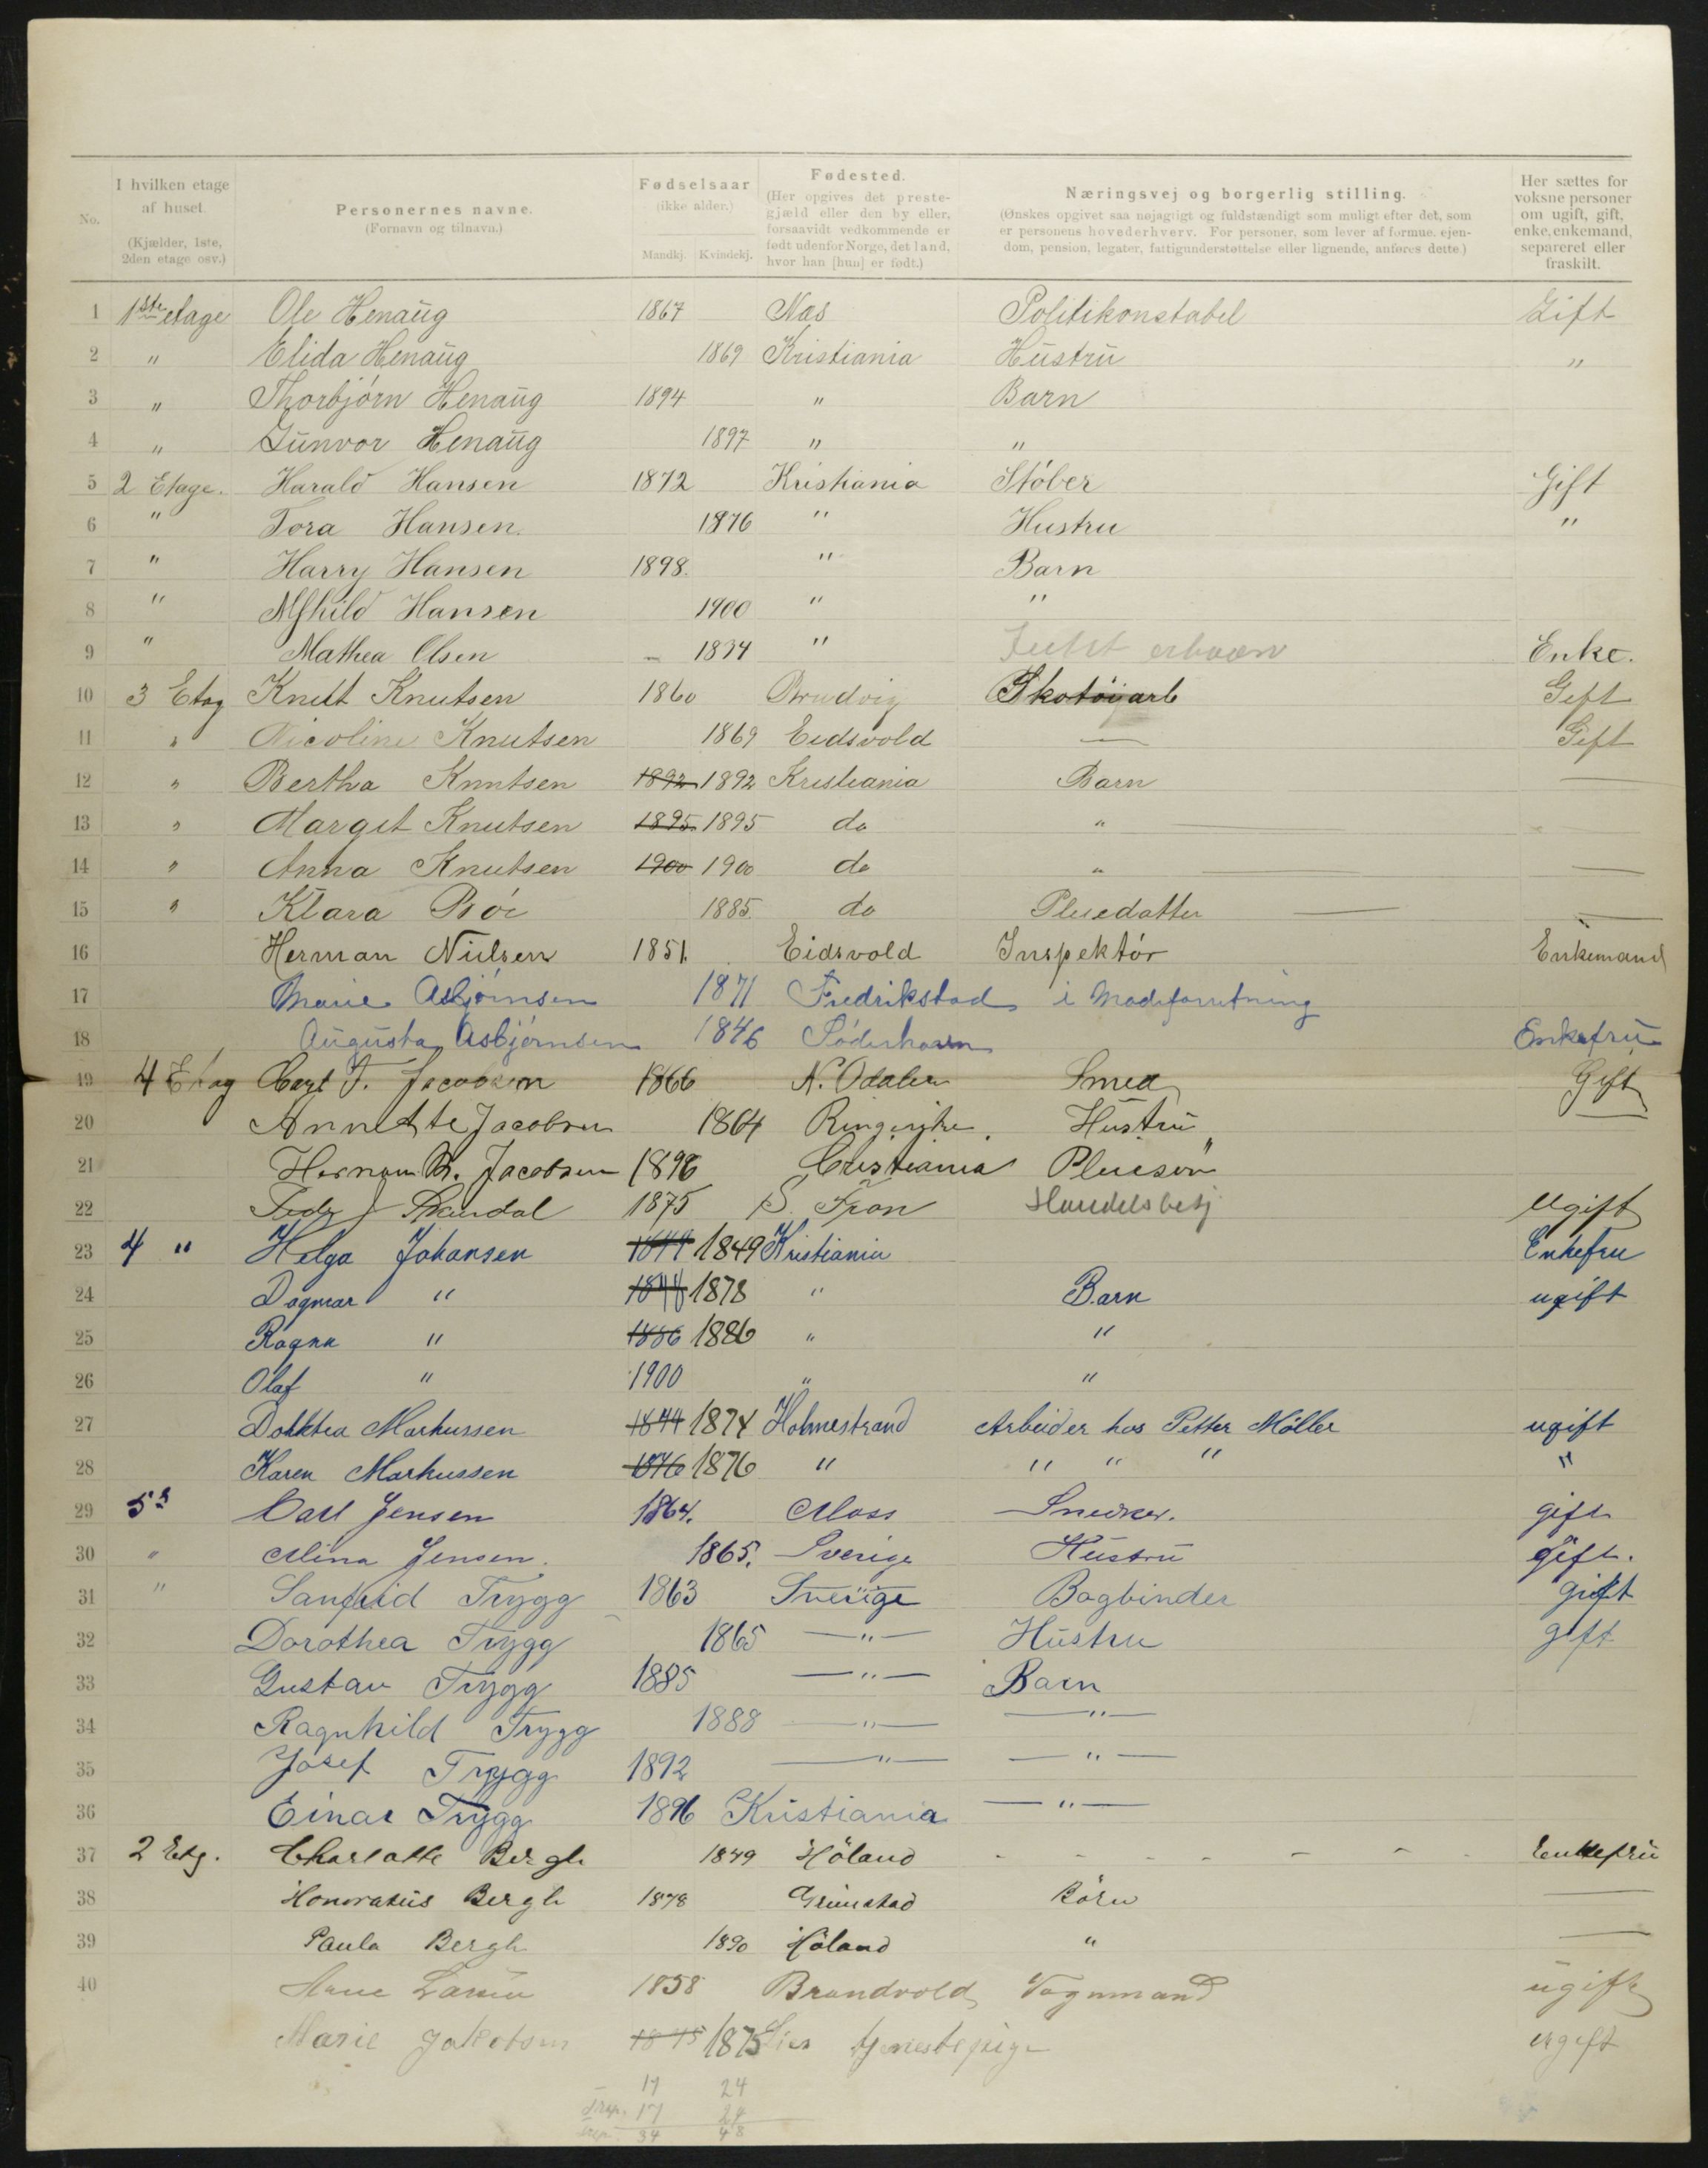 No. I hvilken etage af huset. (Kjælder, 1ste, 2den etage osv.) Personernes navne. (Fornavn og tilnavn.) Fødselsaar (ikke alder.) Mandkj. Kvindekj. Fødested. (Her opgives det prestegjæld eller den by eller, forsaavidt vedkommende er født udenfor Norge, det land, hvor han [hun] er født.) Næringsvej og borgerlig stilling. (Ønskes opgivet saa nøjagtigt og fuldstændigt som muligt efter det, som er personens hovederhverv. For personer, som lever af formue, ejendom, pension, legater, fattigunderstøttelse eller lignende, anføres dette.) Her sættes for voksne personer om ugift, gift, enke, enkemand, separeret eller fraskilt.
1 1ste etage Ole Henaug 1867 Næs Politikonstabel Gift
2 " Elida Henaug 1869 Kristiania Hustru "
3 " Thorbjörn Henaug 1894 " Barn
4 " Gunvor Henaug 1897 " "
5 2 Etage. Harald Hansen 1872 Kristiania Stöber Gift
6 " Tora Hansen. 1876 " Hustru "
7 " Harry Hansen 1898. " Barn
8 " Alfhild Hansen 1900 " "
9 " Mathea Olsen 1834 " Enke.
10 3 Etag Knut Knutsen 1860 Brudvig Skotöiarb Gift
11 " Nicoline Knutsen 1869 Eidsvold — Gift
12 " Bertha Knutsen 1892 1892 Kristiania Barn —
13 " Margit Knutsen 1895 1895 do " —
14 " Anna Knutsen 1900 1900 do " —
15 " Klara Böe 1885 do Pleiedatter —
16 Herman Nielsen 1851. Eidsvold Inspektör Enkemand
17 Marie Asbjörnsen 1871 Fredrikstad i Modeforretning
18 Augusta Asbjörnsen 1846 Söderhamn Enkefru
19 4 Etag Carl F. Jacobsen 1866 N. Odalen Smed Gift
20 Annette Jacobsen 1864 Ringerike. Hustru "
21 Herman B. Jacobsen 1896 Cristiania Pleiesön
22 Skandal 1875 S. Fron Handelsbetj Ugift
23 4 " Helga Johansen 1849 Kristiania Enkefru
24 Dagmar " 1878 " Barn ugift
25 Ragna " 1886 1886 " "
26 Olaf " 1900 " "
27 Dorthea Markussen 1874 Holmestrand Arbeider hos Petter Möller ugift
28 Karen Markussen 1876 1876 " " " " "
29 5s Carl Jensen 1864. Moss Snedker. gift
30 " Mina Jensen. 1865. Sverige Hustru gift.
31 " Sanfrid Trygg 1863 Sverige Bogbinder gift
32 Dorothea Trygg 1865 —"— Hustru gift
33 Gustav Trygg 1885 —"— Barn
34 Ragnhild Trygg 1888 —"— —"—
35 Josef Trygg 1892 —"— —"—
36 Einar Trygg 1896 Kristiania —"—
37 2 Etg. Charlotte Bergh 1849 Höland - - - - - - Enkefru
38 Honoratus Bergh 1878 Grimstad Börn —
39 Paula Bergh 1890 Höland " —
40 Larsen 1858 Brandvold Vognmand ugift
Marie Jakobsen 1875 1875 tjenestepige ugift
17 24
17 24
34 48